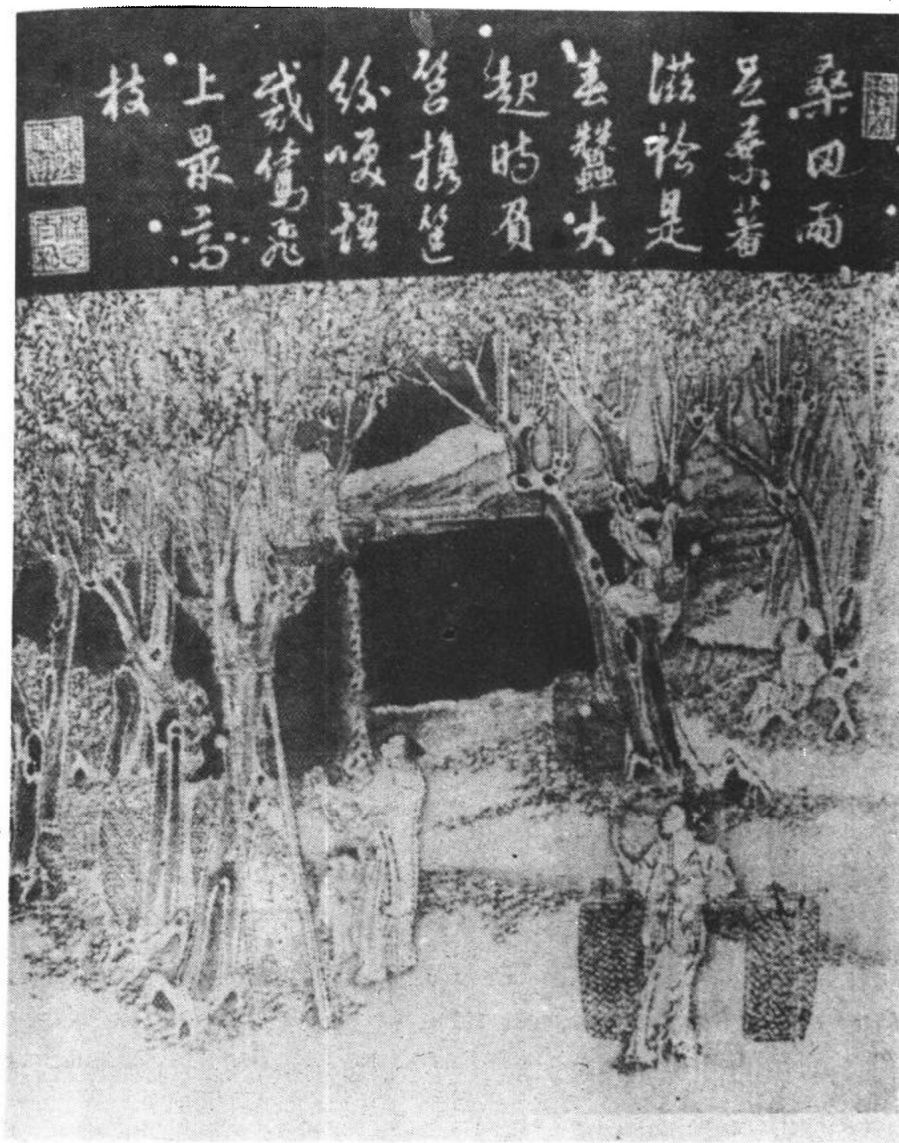 桑田雨
足葉蕃
滋恰是
春蠶大
起時負
筥携筐
紛咲語
戴鵀飛
上最高
枝